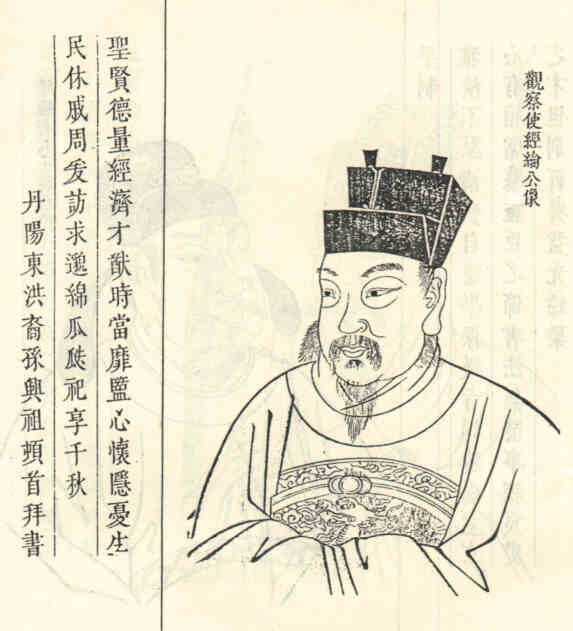 觀察使經綸公像
聖賢德量經濟才猷時當靡盬心懷隱憂生
民休戚周爰訪求邈綿瓜瓞祀享千秋
丹陽東洪裔孫興祖頓首拜書